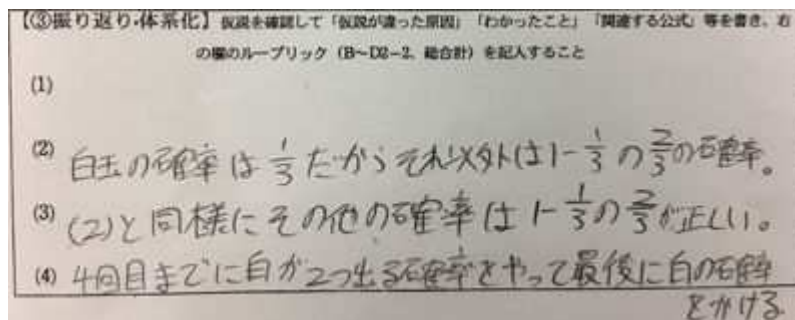 【③振り返り・体系化】仮説を確認して「仮説が違った原因」「わかったこと」「関連する公式」等を書き、右
の欄のルーブリック（B～D2－2、総合計）を記入すること
(1)
(2) 白玉の確率は 1/3 だからそれ以外は 1-1/3 の 2/3 の確率。
(3) (2)と同様にその他の確率は 1-1/3 の 2/3 が正しい。
(4) 4回目までに白が2つ出る確率をやって最後に白の確率
をかける